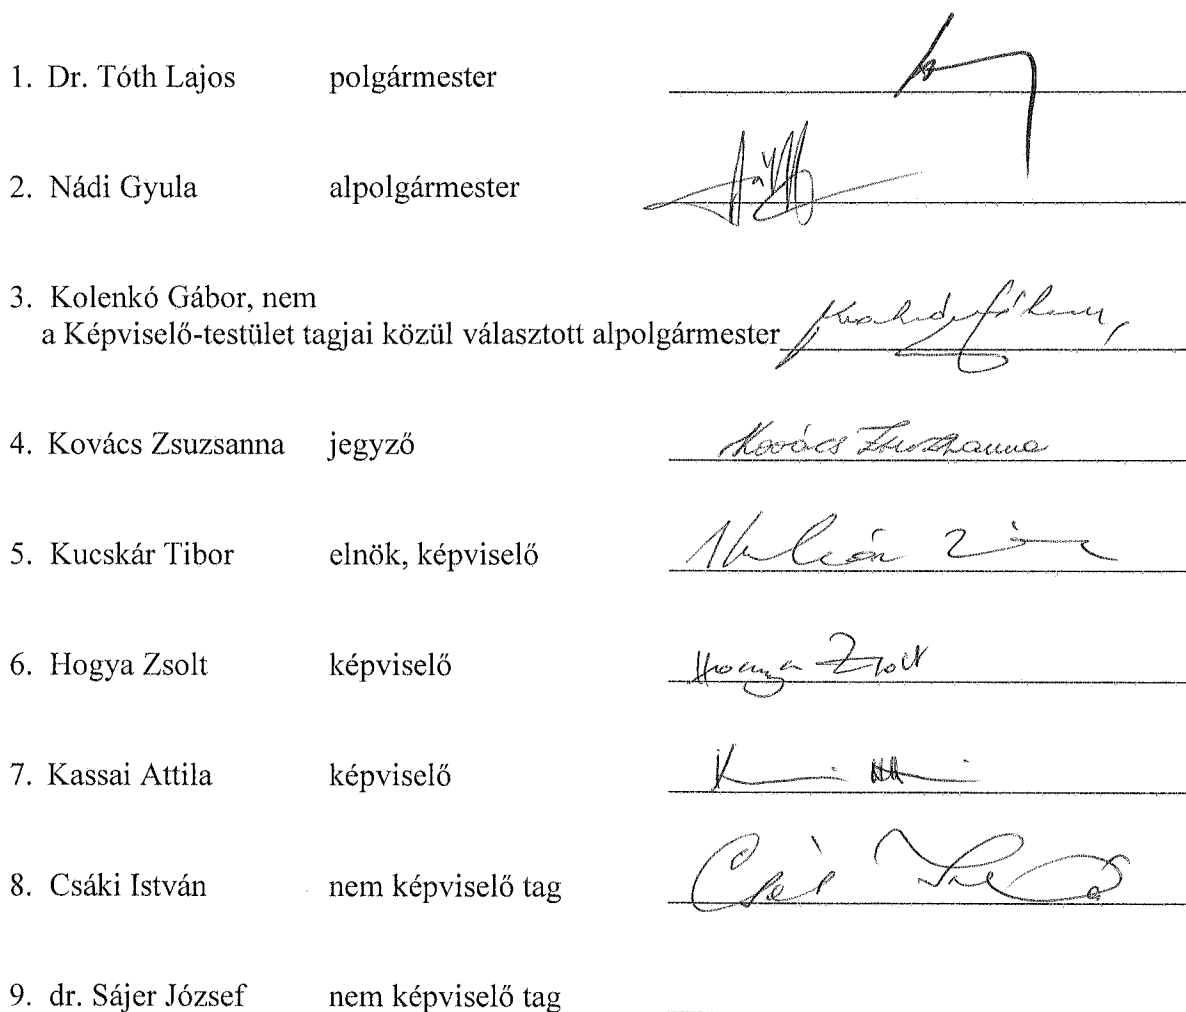 1. Dr. Tóth Lajos polgármester
2. Nádi Gyula alpolgármester
3. Kolenkó Gábor, nem
a Képviselő-testület tagjai közül választott alpolgármester
4. Kovács Zsuzsanna jegyző Kovács Zsuzsanna
5. Kucskár Tibor elnök, képviselő
6. Hogya Zsolt képviselő Hogya Zsolt
7. Kassai Attila képviselő
8. Csáki István nem képviselő tag
9. dr. Sájer József nem képviselő tag